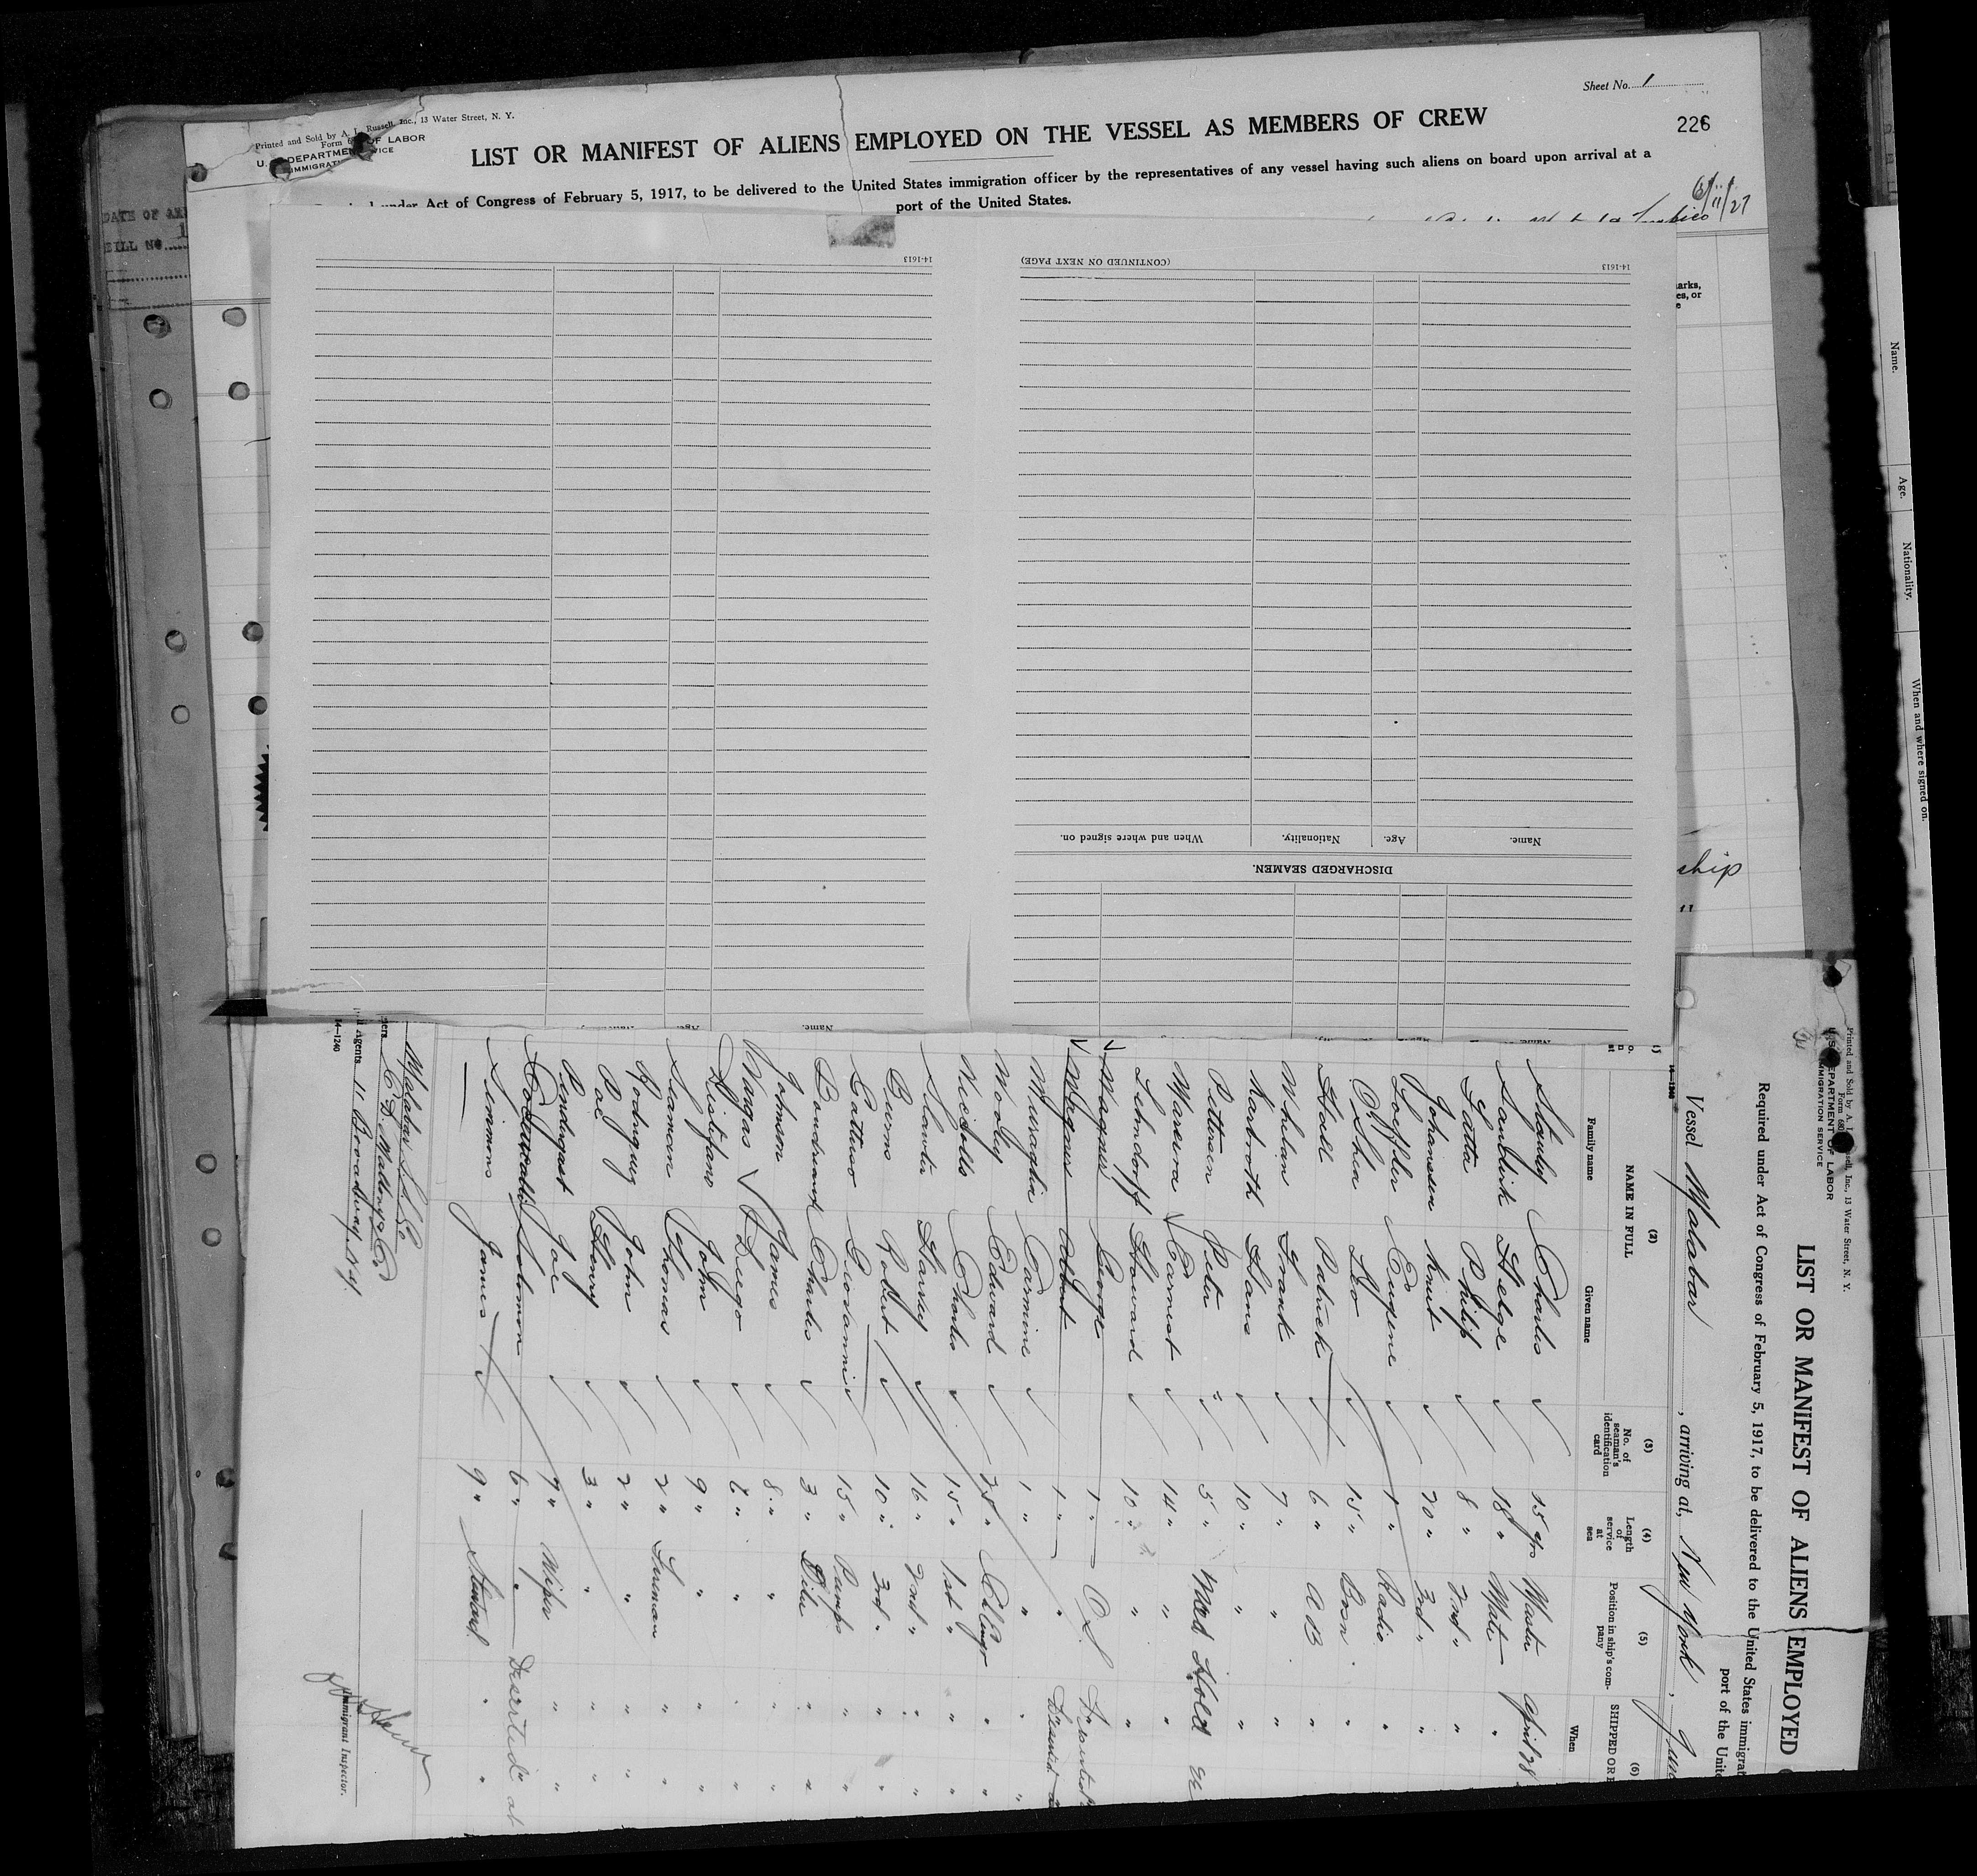 Sheet No. 1
226
Printed and Sold by A. L. Russell, Inc., 13 Water Street, N. Y.
U. S. DEPARTMENT OF LABOR
IMMIGRATION SERVICE
LIST OR MANIFEST OF ALIENS EMPLOYED ON THE VESSEL AS MEMBERS OF CREW
under Act of Congress of February 5, 1917, to be delivered to the United States immigration officer by the representatives of any vessel having such aliens on board upon arrival at a
port of the United States.
6/11/27
DATE OF
BILL NO.
14-1613
(CONTINUED ON NEXT PAGE)
14-1613
arks,
es, or
e
Name.
Age.
Nationality.
When and where signed on.
Name.
Age.
Nationality.
When and where signed on.
DISCHARGED SEAMEN.
ship
"
Name.
Printed and Sold by A. L. Russell, Inc., 13 Water Street, N. Y.
Form 680
U. S. DEPARTMENT OF LABOR
IMMIGRATION SERVICE
LIST OR MANIFEST OF ALIENS EMPLOYED
Required under Act of Congress of February 5, 1917, to be delivered to the United States immigrat
port of the Unite
Vessel Malabar, arriving at New York, June
14-1240
(2) (3) (4) (5) (6)
NAME IN FULL
Family name Given name
No. of seaman's identification card
Length of service at sea
Position in ship's company
SHIPPED OR E
When
Charles 15 yrs Master April 28
Helge 18 " Mate "
Philip 8 " 2nd " "
Johansen Knut 20 " 3rd " "
Loeffler Eugene 1 " Radio "
O'Shea Leo 15 " Bosn "
Hall Patrick 6 " A B "
Whelan Frank 7 " " "
Karbroth Hans 10 " " "
Pettersen Peter 5 " Med Hold
Earnest 14 " " "
Lehmdorff Howard 10 " " "
Wagner George 1 " O S
Wagner Albert 1 " " Deserted
Carmine 1 " " "
Wooly Edward 25 " Ch Engr "
Nicholls Charles 15 " 1st " "
Slawter Harvey 16 " 2nd " "
Burns Robert 10 " 3rd " "
Gattuso Giovanni 15 " Pumps "
Boudreaux Charles 3 " Oiler "
Johnson James 8 " " "
Vargas Diego " " "
Distifano John 9 " " "
Thomas 2 " Fireman "
Rodriguez John 2 " " "
Poe Henry 3 " " "
Pendergast Joe 7 " Wiper "
Solomon 6 " " Deserted at
Simmons James 9 " Steward "
Malabar S S Co
C D Mallory & Co
Agents 11 Broadway N.Y.
14—1240
Immigrant Inspector.